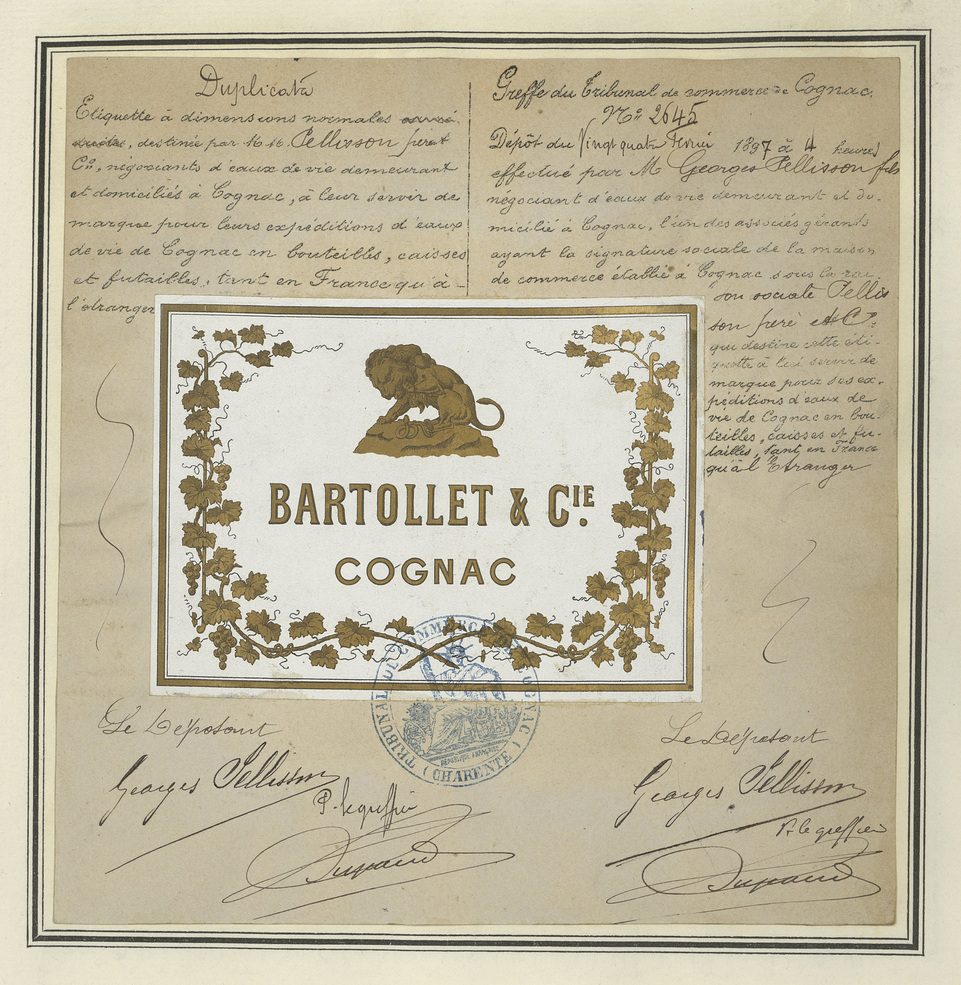 Duplicata
Etiquette à dimensions normales
, destinée par M.M. Pellisson père &
Cie, négociants d'eaux de vie demeurant
et domiciliés à Cognac, à leur servir de
marque pour leurs expéditions d'eaux
de vie de Cognac en bouteilles, caisses
et futailles, tant en France qu'à
l'étranger
Greffe du Tribunal de commerce de Cognac.
No. 2645
Dépôt du Vingt quatre Février 1897 à 4 heures
effectué par M Georges Pellisson fils
négociant d'eaux de vie demeurant et do-
micilié à Cognac, l'un des associés gérants
ayant la signature sociale de la maison
de commerce établie à Cognac sous la rai-
son sociale Pellis
son père & Cie
qui destine cette éti-
quette à lui servir de
marque pour ses ex-
péditions d'eaux de
vie de Cognac en bou-
teilles, caisses et fu-
tailles, tant en France
qu'à l'Etranger
BARTOLLET & CIE.
COGNAC
TRIBUNAL DE COMMERCE DE COGNAC
RÉPUBLIQUE FRANÇAISE
(CHARENTE)
Le Déposant
Georges Pellisson
P. le greffier
Le Déposant
Georges Pellisson
P. le greffier